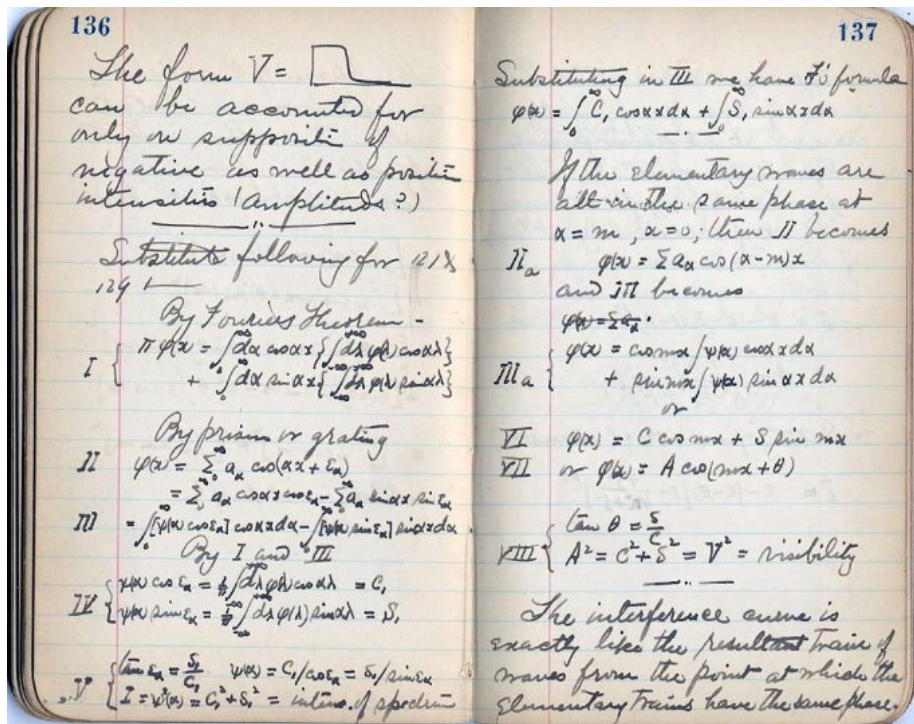 136
The form V =
can be accounted for
only on suppositi of
negative as well as positive
intensities (amplitudes?)
Substitute following for 128
129
By Fouriers Theorem -
I { π φ(x) = ∫₀^∞ dα cos αx { ∫₋∞^+∞ dλ φ(λ) cos αλ }
+ ∫₀^∞ dα sin αx { ∫₋∞^+∞ dλ φ(λ) sin αλ }
By prism or grating
II φ(x) = Σ₀^∞ a_α cos(αx + ε_α)
= Σ₀^∞ a_α cos αx cos ε_α − Σ₀^∞ a_α sin αx sin ε_α
III = ∫₀^∞ [ψ(α) cos ε_α] cos αx dα − ∫₀^∞ [ψ(α) sin ε_α] sin αx dα
By I and III
IV { ψ(α) cos ε_α = 1/π ∫₋∞^∞ dλ φ(λ) cos αλ = C₁
ψ(α) sin ε_α = 1/π ∫₋∞^∞ dλ φ(λ) sin αλ = S₁
V { tan ε_α = S₁/C₁ ψ(α) = C₁/cos ε_α = S₁/sin ε_α
I = ψ²(α) = C₁² + S₁² = intens. of spectrum
137
Substituting in III we have F's formula
φ(x) = ∫₀^∞ C₁ cos αx dα + ∫₀^∞ S₁ sin αx dα
If the elementary waves are
all in the same phase at
α = m, x = 0, then II becomes
II_a φ(x) = Σ a_α cos (α − m)x
and III becomes
φ(x) = Σ a_α .
III_a { φ(x) = cos mx ∫ψ(α) cos αx dα
+ sin mx ∫ψ(α) sin αx dα
or
VI φ(x) = C cos mx + S sin mx
VII or φ(x) = A cos(mx + θ)
VIII { tan θ = S/C
A² = C² + S² = V² = visibility
The interference curve is
exactly like the resultant train of
waves from the point at which the
elementary trains have the same phase.